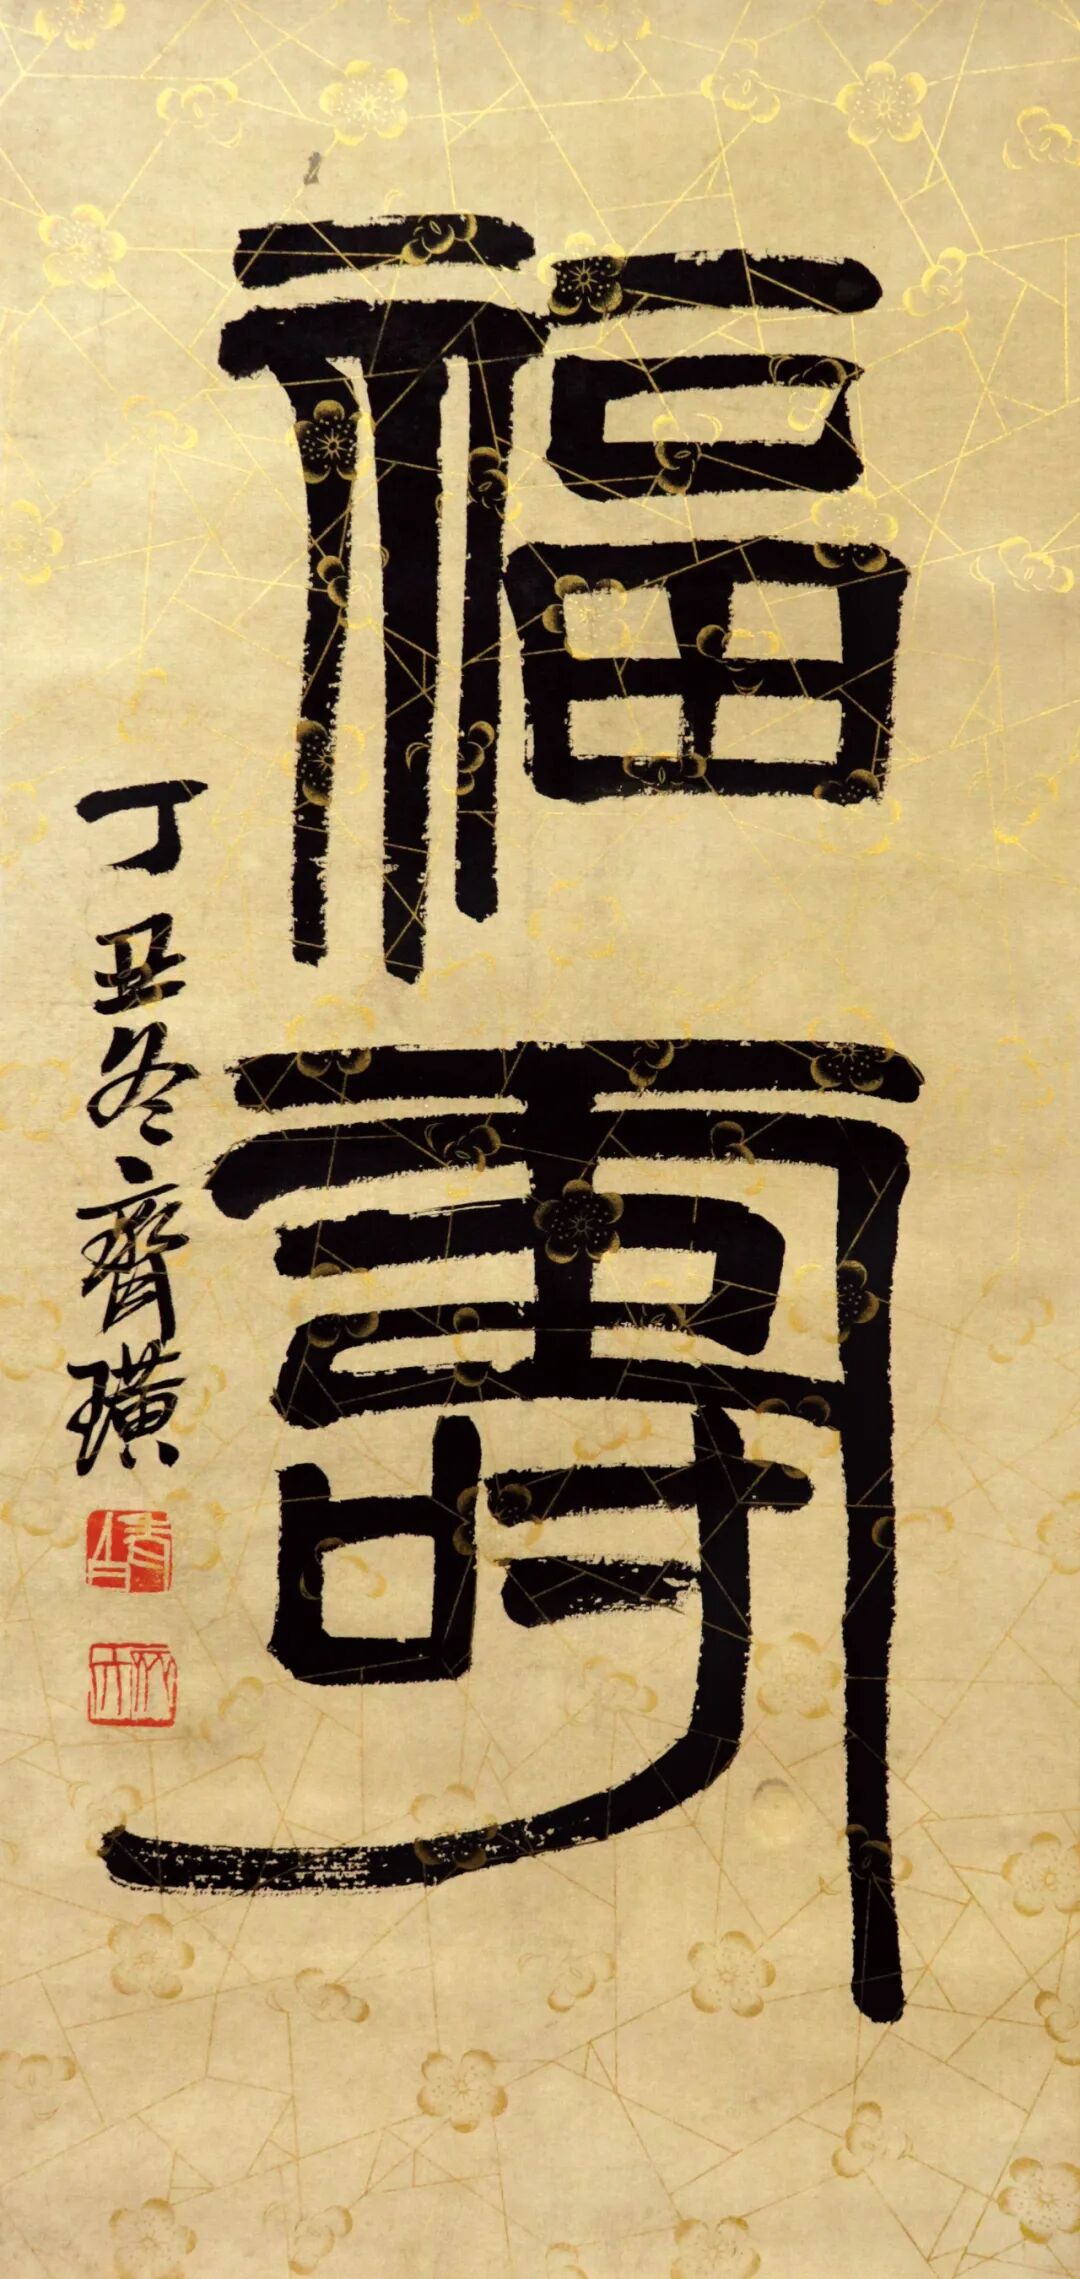 福壽
丁丑冬齊璜